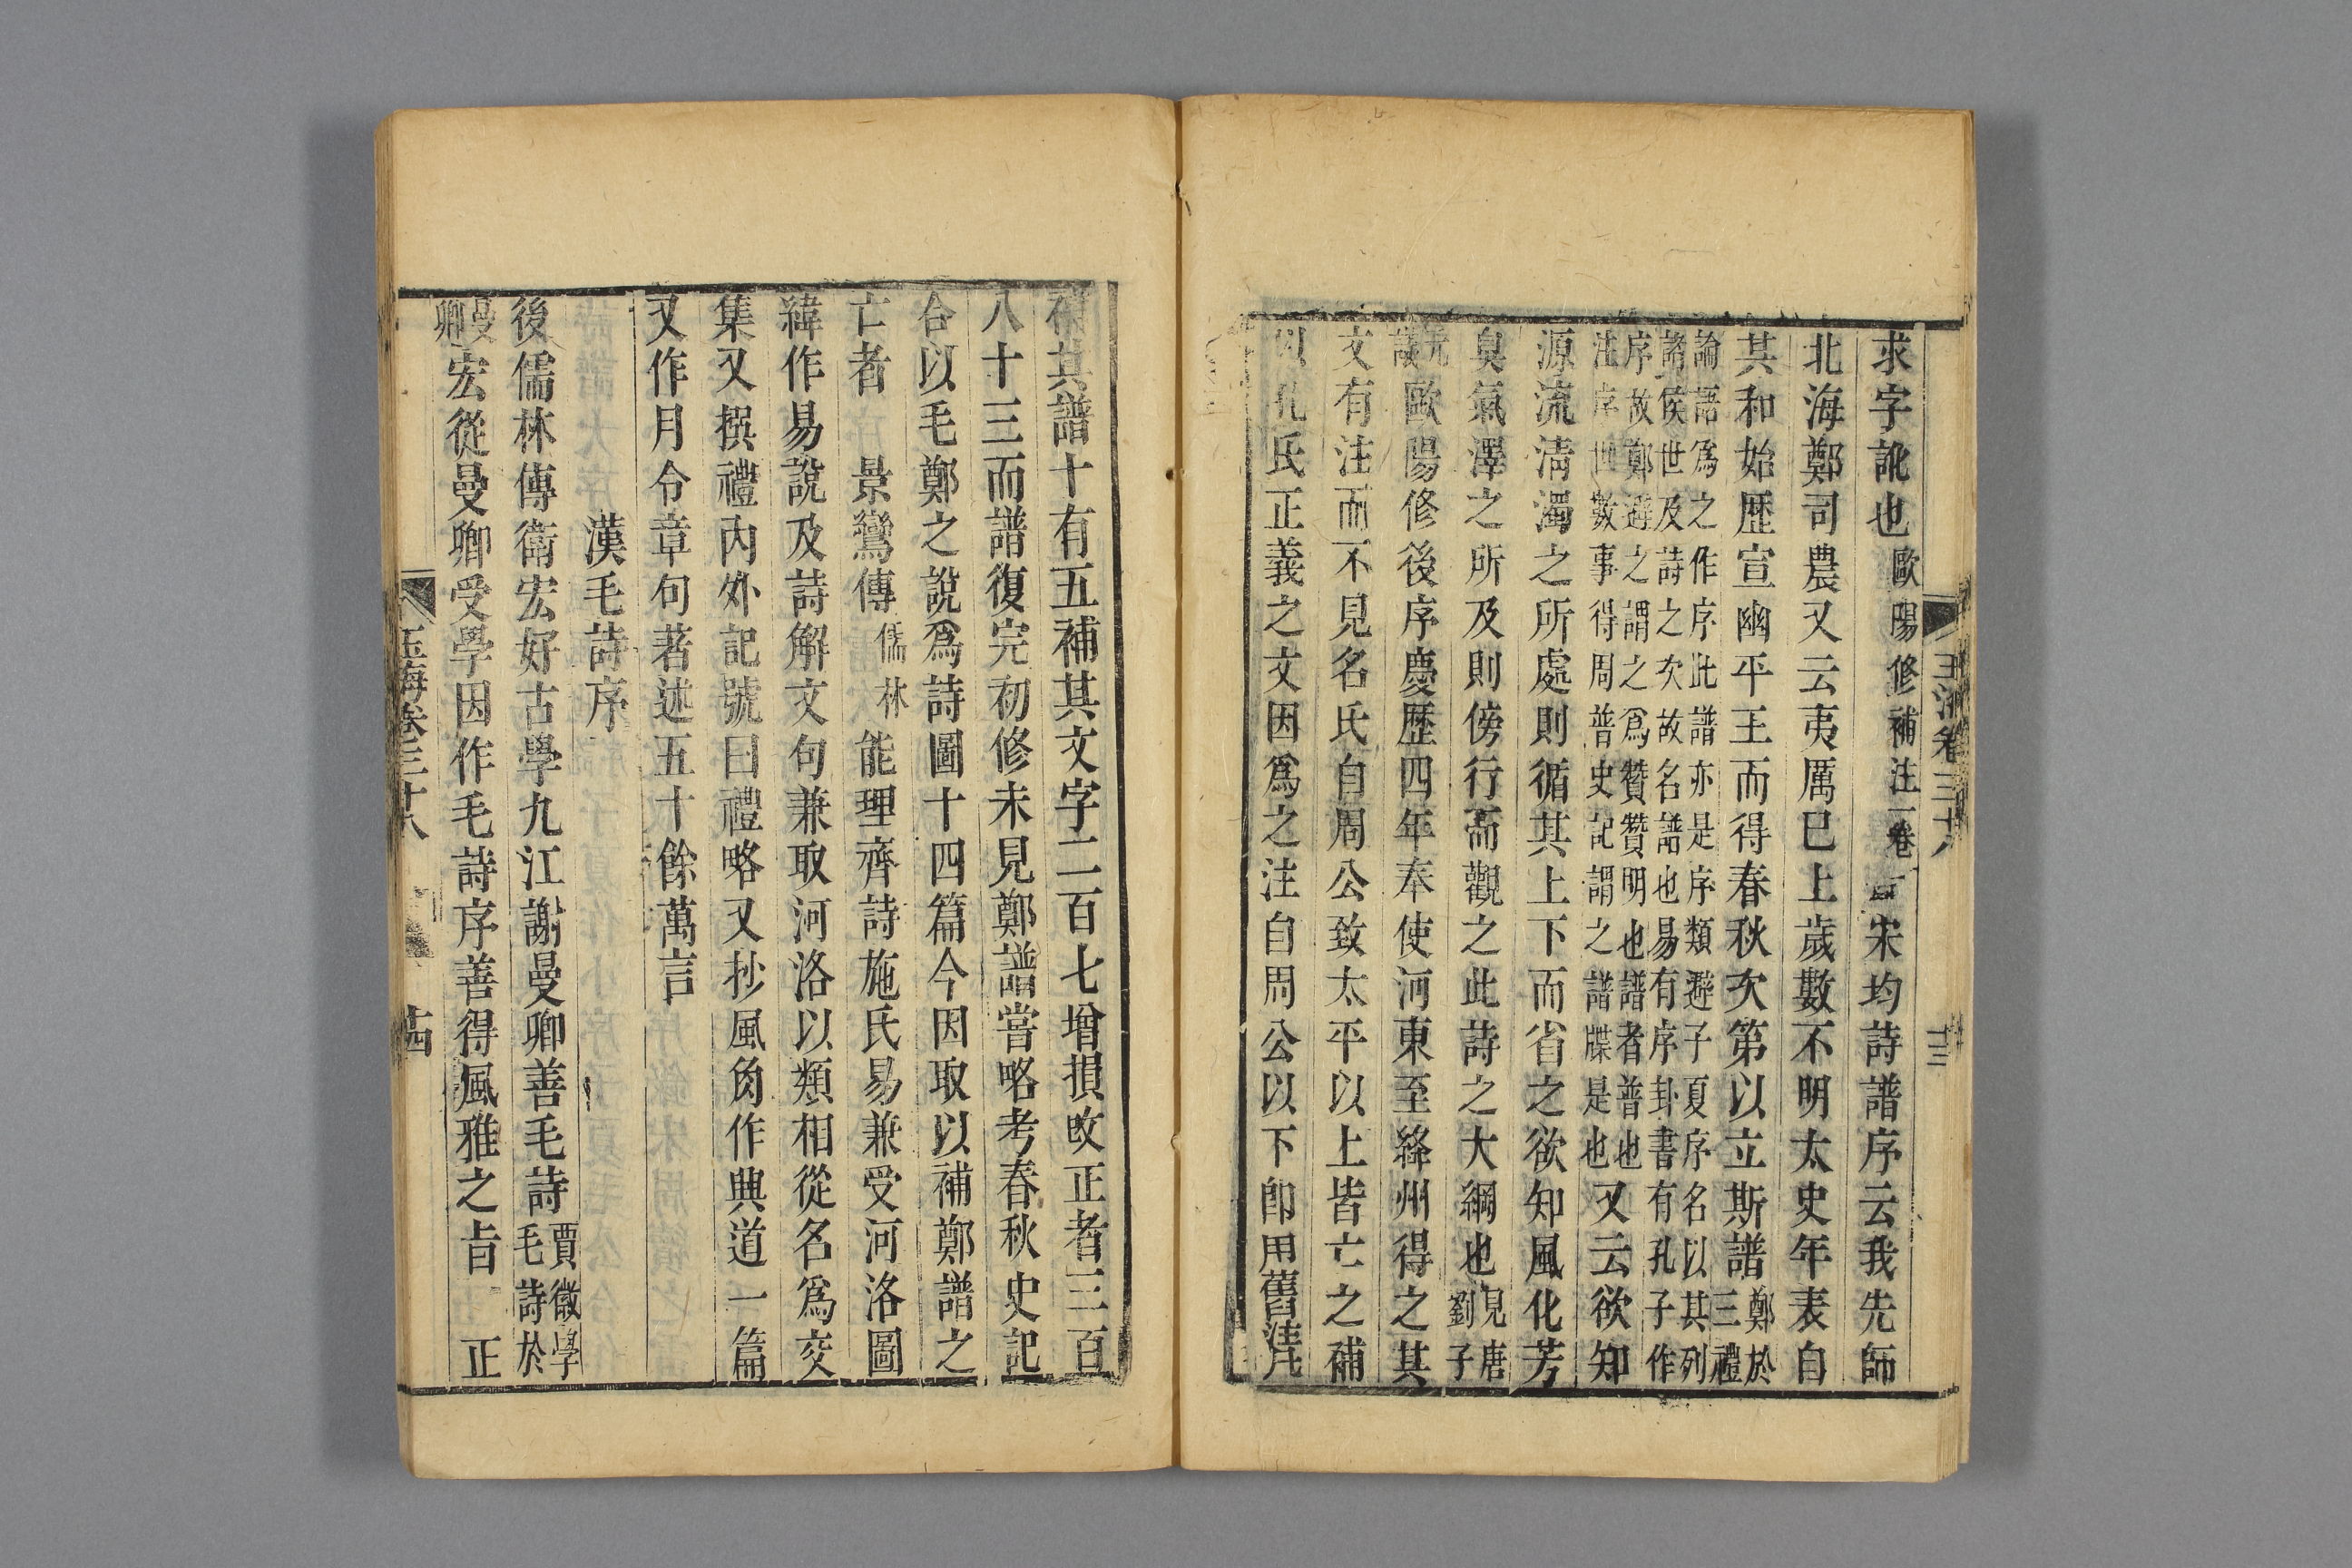 玉海卷三十八
十三
求字訛也歐陽修補注一卷宋均詩譜序云我先師
北海鄭司農又云夷厲巳上歲數不明太史年表自
共和始歷宣幽平王而得春秋次第以立斯譜鄭於三禮
論語爲之作序此譜亦是序類避子夏序名以其列
諸侯世及詩之次故名譜也易有序卦書有孔子作
序故鄭避之謂之爲贊贊明也譜者普也
注序世數事得周普史記謂之譜牒是也又云欲知
源流清濁之所處則循其上下而省之欲知風化芳
臭氣澤之所及則傍行而觀之此詩之大綱也見唐劉子
元議歐陽修後序慶歷四年奉使河東至絳州得之其
文有注而不見名氏自周公致太平以上皆亡之補
以孔氏正義之文因爲之注自周公以下即用舊注凡
補其譜十有五補其文字二百七增損改正者三百
八十三而譜復完初修未見鄭譜嘗略考春秋史記
合以毛鄭之說爲詩圖十四篇今因取以補鄭譜之
亡者 景鸞傳儒林能理齊詩施氏易兼受河洛圖
緯作易說及詩解文句兼取河洛以類相從名爲交
集又撰禮內外記號曰禮略又抄風角作興道一篇
又作月令章句著述五十餘萬言
漢毛詩序
後儒林傳衛宏好古學九江謝曼卿善毛詩賈徽學毛詩於
曼卿宏從曼卿受學因作毛詩序善得風雅之旨 正
玉海卷三十八
十四